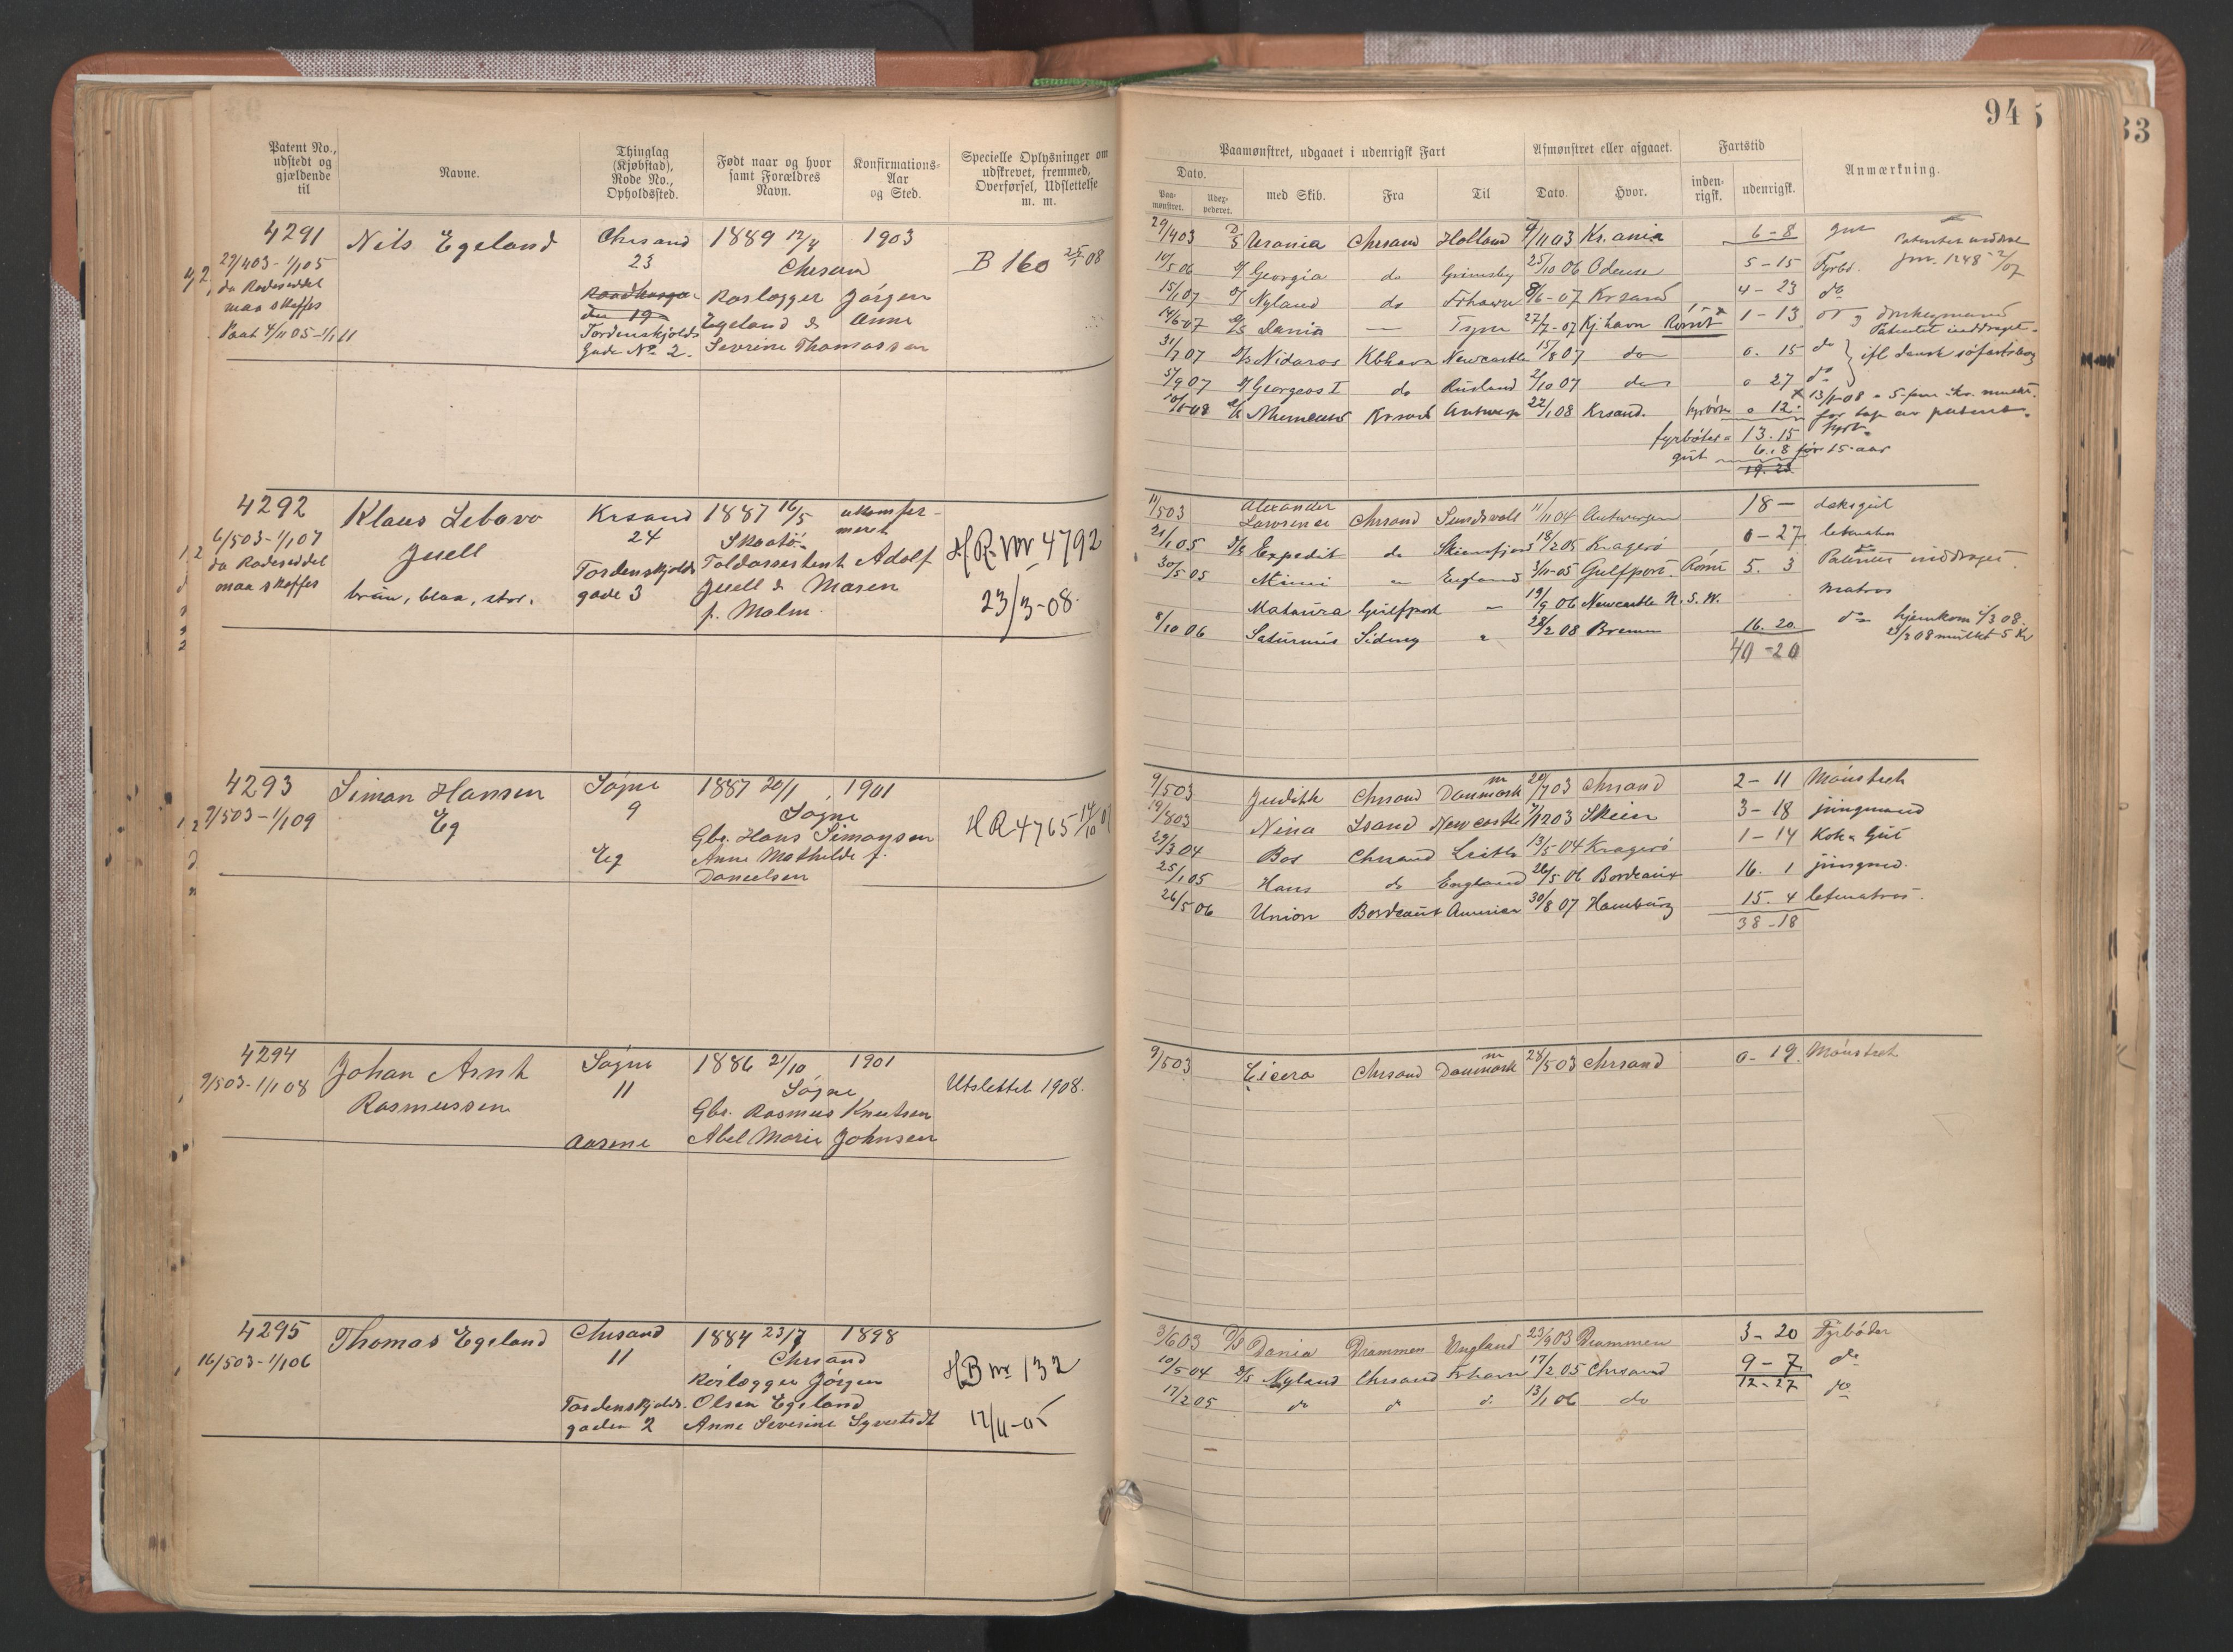 94
Patent No., udstedt og gjældende til
Navne.
Thinglag (Kjøbstad), Rode No., Opholdssted.
Født naar og hvor samt Forældres Navn.
Konfirmations-Aar og Sted.
Specielle Oplysninger om udskrevet, fremmed, Overførsel, Udslettelse m. m.
Paamønstret, udgaaet i udenrigsk Fart
Afmønstret eller afgaaet.
Fartstid
Anmærkning.
Dato.
Paa-mønstret.
Udex-pederet.
med Skib.
Fra
Til
Dato.
Hvor.
inden-rigsk.
udenrigsk.
4291 Nils Egeland Chrsand 1889 12/4 1903
29/403 - 1/105 23 Chrsan B 160 25/1 08
da Rodeseddel Raadhusga- Rorlægger Jørgen
maa skaffes den 19 Egeland & Anne
Pant 4/11 05 - 1/1 11 Tordenskjolds Severine Thomassen
Gade No 2.
29/403 D/S Urania Chrsand Holland 7/1103 Kr.ania 6-8
14/5 06 Georgia do Grimsby 25/10 06 Odense 5-15 Fyrbd.
15/1 07 Nyland do Frhavn 8/6-07 Krsand 4-23 do
14/6 07 D/S Dania — Tyne 27/7-07 Kj.havn Rømt 1-13
31/7 07 D/S Nidaros Kbhavn Newcastle 15/8 07 do 0. 15 do ifl dansk søfartsbog
5/9 07 Georgeos I do Rusland 2/10 07 do 0 27 do
Krsand Antwerp 22/1 08 Krsand. 0 12
fyrbøter 13.15 fyrb.
gut 6.8 før 15 aar
19.23
4292 Klaus Lebovo Krsand 1887 16/5 ukonfir-
6/503 - 1/107 Juell 24 Skaatø meret
da Rodeseddel Tordenskjolds Toldassistent Adolf H R nr 4792
maa skaffes brun, blaa, stor. gade 3 Juell & Maren 23/3-08.
f. Malm.
11/503 Alexander Lawrence Chrsand Sundsvall 11/1104 Antwerpen 18 — daksgut
21/1 05 D/S Expedit do Skiensfjord 18/2 05 Kragerø 0-27 letmatros
30/5 05 Mimi " England 3/11-05 Gulfport. Rømt 5. 3 do Patentet inddraget
Mataura Gulfport — 19/9 06 Newcastle N.S.W. matros
8/10 06 Saturnus Sidney " 28/2 08 Bremen 16. 20. do hjemkom 1/3 08.
40-20 mulkt 5 Kr
4293 Siman Hansen Søgne 1887 20/1 1901
9/503 - 1/109 Eg 9 Søgne
Gbr. Hans Simonsen H R 4765 14/10
Eg Anne Mathilde f.
Danielsen
9/503 Judith Chrsand Danmark 20/703 Chrsand 2-11 Mønstret
19/803 Nina Lsand Newcastle 7/1203 Skien 3-18 jungmand
29/3 04 Bos Chrsand Leith 13/5 04 Kragerø 1-14 Kok & Gut
25/1 05 Hans do England 26/5 06 Bordeaux 16. 1 jungmd.
26/5 06 Union Bordeaux America 30/8 07 Hamburg 15. 4 letmatros.
38-18
4294 Johan Arnt Søgne 1886 21/10 1901
9/503 - 1/108 Rasmussen 11 Søgne Utslettet 1908.
Gbr. Rasmus Knutsen
Aasene Abel Marie Johnsen
9/503 Cicero Chrsand Danmark 28/503 Chrsand 0-19. Mønstret
4295 Thomas Egeland Chrsand 1884 23/7 1898
16/503 - 1/106 11 Chrsand
Rørlægger Jørgen H B nr 132
Tordenskjolds. Olsen Egeland
gaden 2 Anne Severine Syvertsdt 17/11-05
3/603 D/S Dania Drammen England 23/903 Drammen 3-20 Fyrbøder
10/5 04 D/S Nyland Chrsand Frhavn 17/2 05 Chrsand 9-7 do
17/2 05 do do do 13/1 06 do 12-27 do